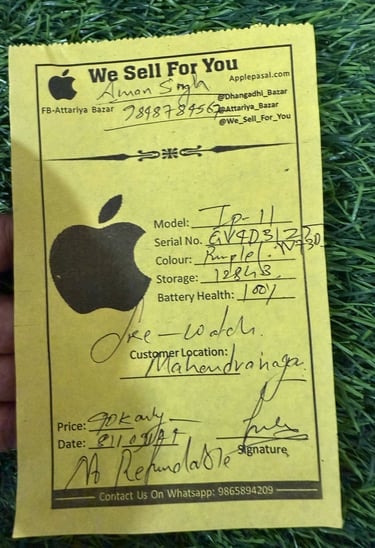 We Sell For You
Aman Singh
Applepasal.com
FB-Attariya Bazar
9848784567
@Dhangadhi_Bazar
@Attariya_Bazar
@We_Sell_For_You
Model: Ip-11
Serial No.
Colour: Purple
Storage: 128GB
Battery Health: 100%
Customer Location:
Mahendranagar
Price:
Date:
Signature
No Refundable
Contact Us On Whatsapp: 9865894209